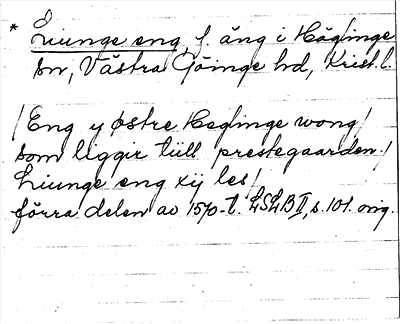 * Liunge eng, f. äng i Häglinge
sn, Västra Göinge hd, Krist. l.
/Eng y østre Heglinge wong/
som liggir tiill prestegaarden/
Liunge eng xij les/
förra delen av 1570-t. LSLB II, s. 101. orig.